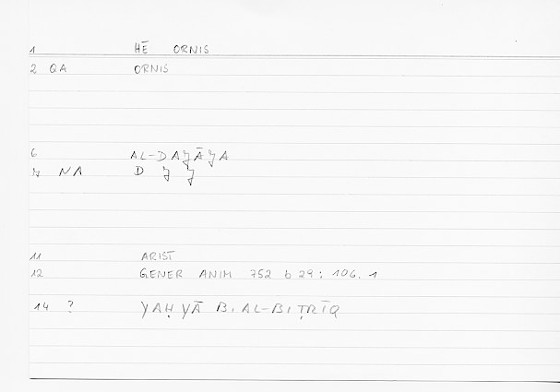 1 HĒ ORNIS
2 QA ORNIS
6 AL-DAJĀJA
7 NA D J J
11 ARIST
12 GENER ANIM 752 b 29; 106.1
14 ? YAḤYĀ B. AL-BIṬRĪQ